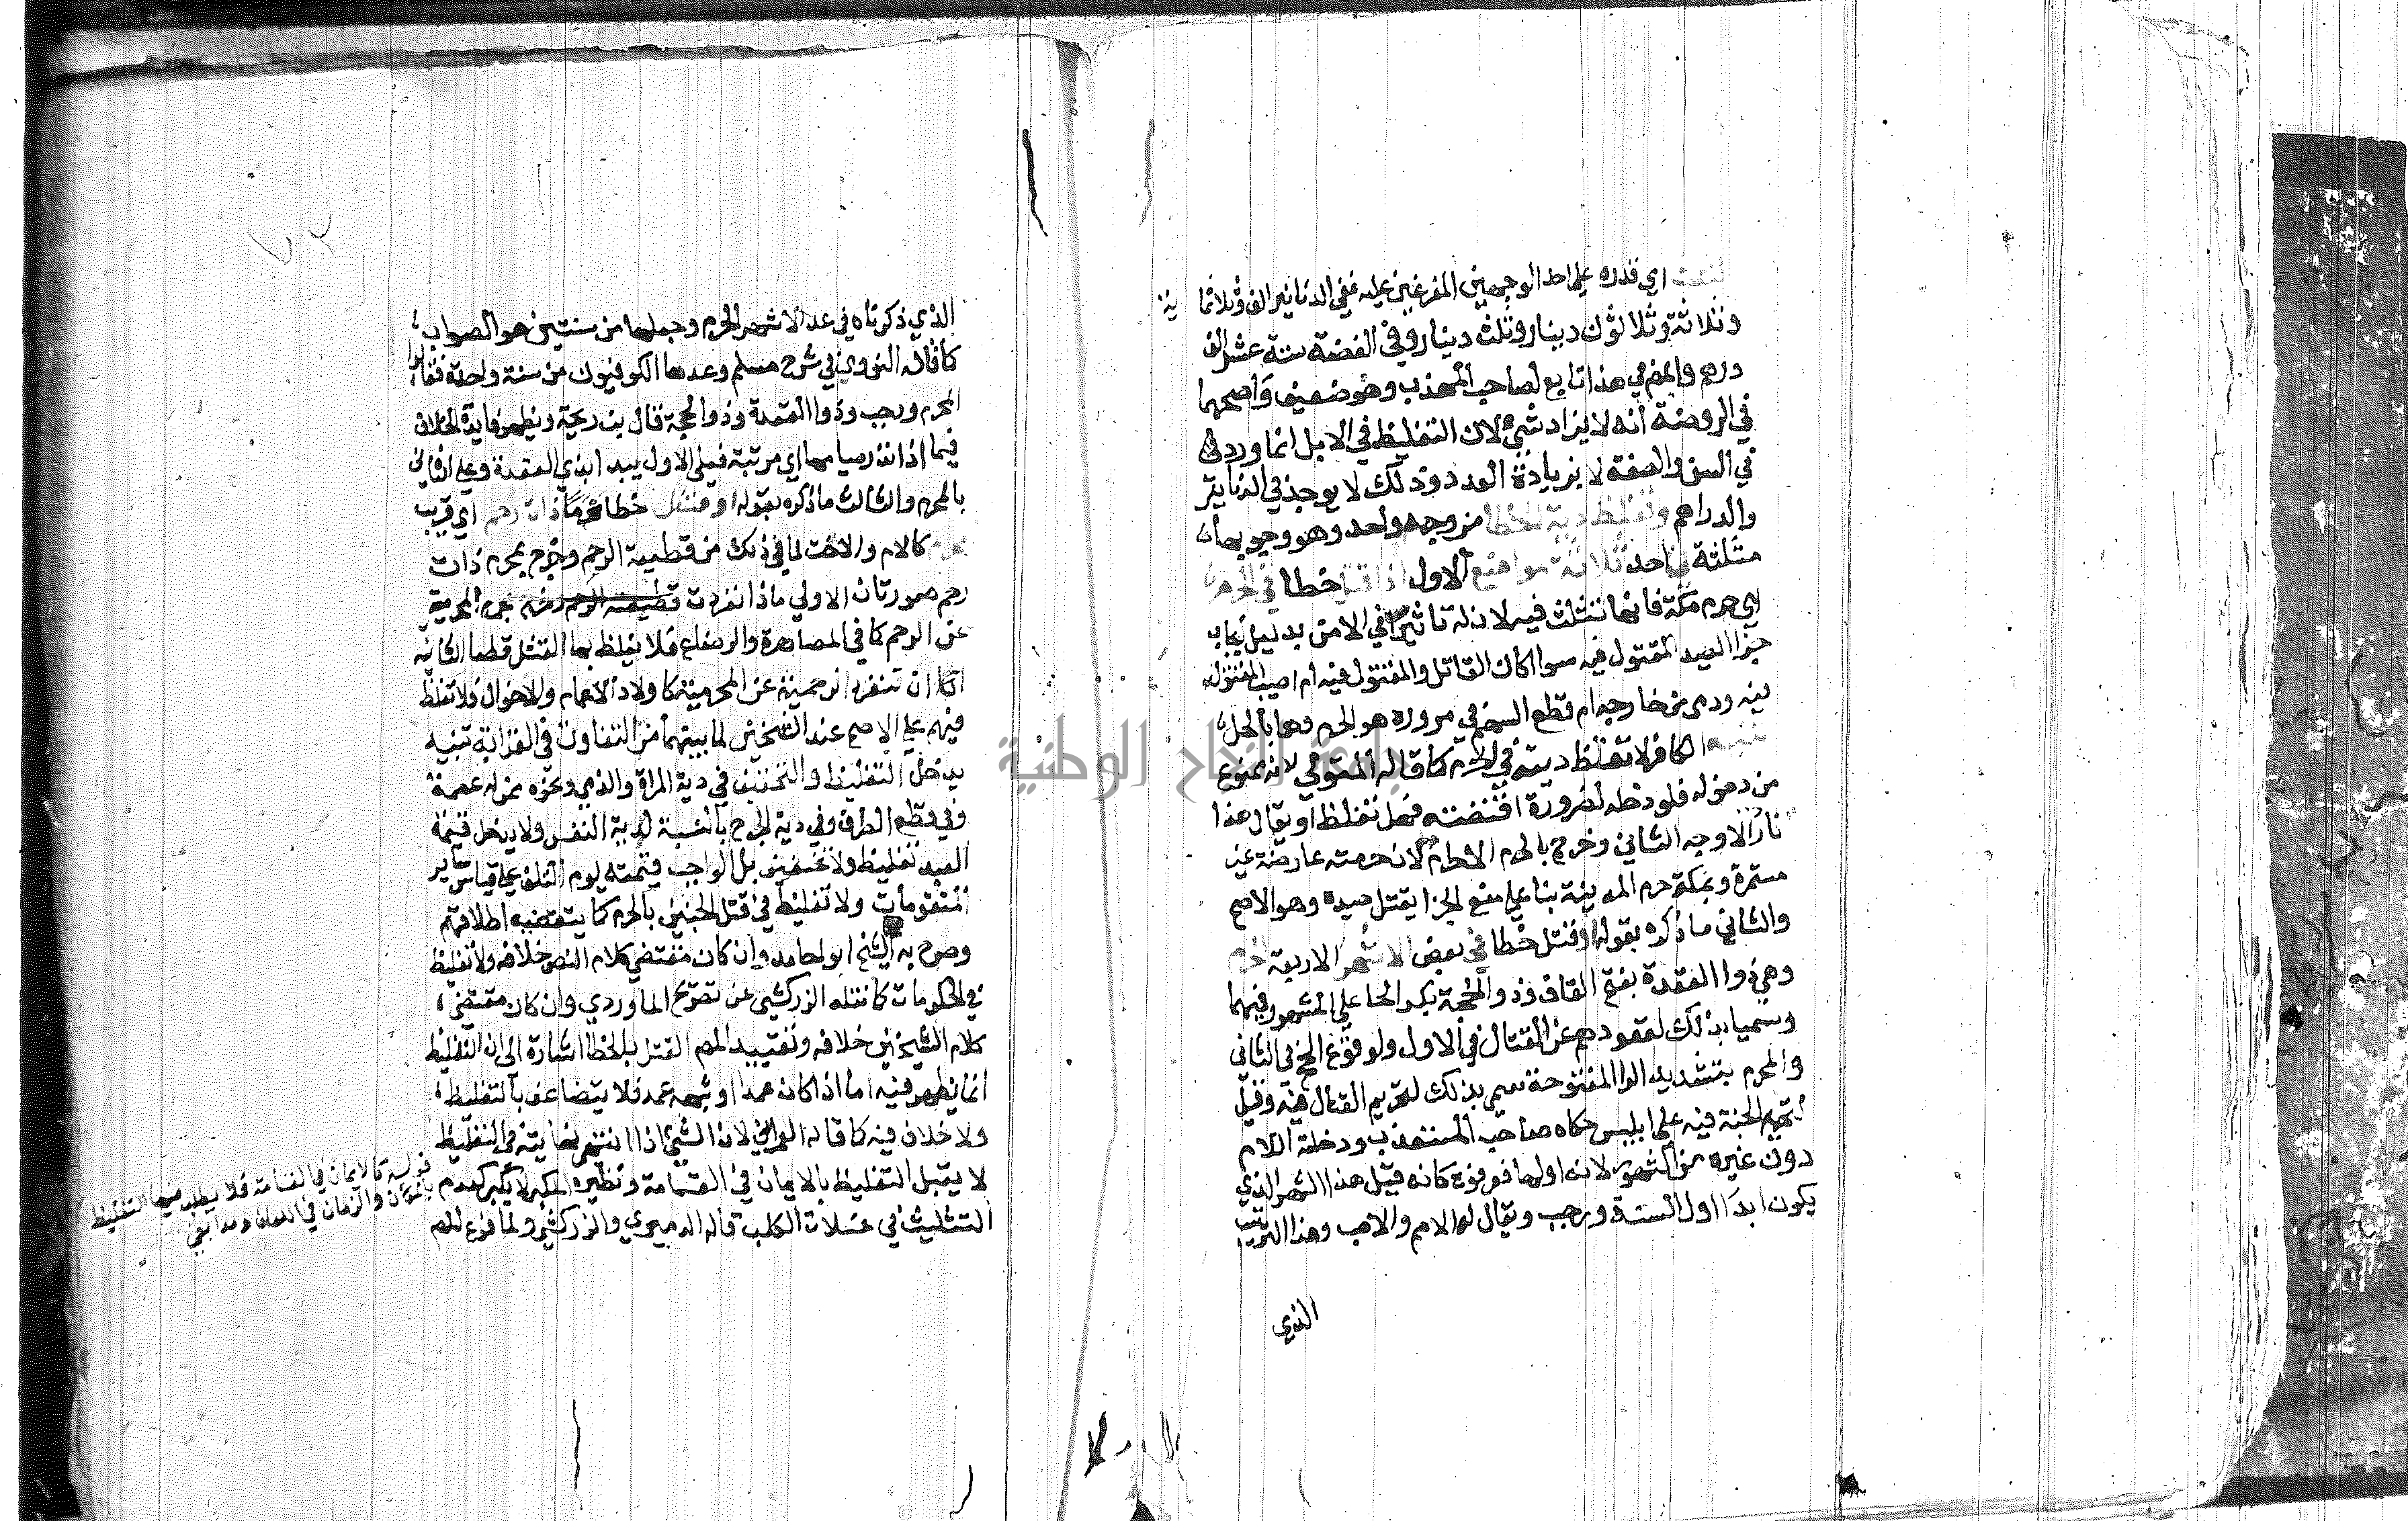 اي قدره علي احد الوجهين المفرعين عليه ففي الدنانير الف وثلاثما ية
وثلاثة وثلاثون دينار وثلث دينار وفي الفضة ستة عشر الف
درهم والمص في هذا تابع لصاحب المهذب وهو ضعيف واصحهما
في الروضة انه لا يزاد شيء لان التغليظ في الابل انما ورد في
في السن والصفة لا بزيادة العدد وذلك لا يوجد في الدنانير
والدراهم وتغلظ دية الخطا من وجه واحد وهو وجوبها
مثلثة باحد ثلاثة مواضع الاول اذا قتل خطا في الحرم
اي حرم مكة فانها تثلث فيه لان له تاثيرا في الامن بدليل ايجاب
جزا الصيد المقتول فيه سوا كان القاتل والمقتول فيه ام اصيب المقتول
فيه ورمي من خارجه ام قطع السهم في مروره هو الحرم وهما بالحل
الكافر لا تغلظ ديته في الحرم كما قاله المتولي لانه ممنوع
من دخوله فلو دخله لضرورة اقتضته فهل تغلظ او يقال هذا
نادر الاوجه الثاني وخرج بالحرم الاحرام لان حرمته عارضة غير
مستمرة وبمكة حرم المدينة بنا علي منع الجزا بقتل صيده وهو الاصح
والثاني ما ذكره بقوله او قتل خطا في بعض الاشهر الاربعة الحرم
وهي ذوا القعدة بفتح القاف وذوالحجة بكسر الحا علي المشهور فيهما
وسميا بذلك لقعودهم عن القتال في الاول ولوقوع الحج في الثاني
والمحرم بتشديد الرا المفتوحة سمي بذلك لتحريم القتال فيه وقيل
لتحريم الجنة فيه علي ابليس حكاه صاحب المستعذب ودخلته اللام
دون غيره من الشهور لانه اولها فعرفوه كانه قيل هذا الشهر الذي
يكون ابدا اول السنة ورجب ويقال له الاصم والاصب وهذا الترتيب
الذي
الذي ذكرناه في عد الاشهر الحرم وجعلها من سنتين هو الصواب
كما قاله النووي في شرح مسلم وعدها الكوفيون من سنة واحدة فقالوا
المحرم ورجب وذوا القعدة وذوا الحجة قال بن دحية ويظهر فايدة الخلاف
فيما اذا نذر صيامها اي مرتبة فعلي الاول يبدا بذي القعدة وعلي الثاني
بالمحرم والثالث ما ذكره بقوله او قتل خطا محرما ذات رحم اي قريب
كالام والاخت لما في ذلك من قطيعة الرحم وخرج بمحرم ذات
رحم صورتان الاولي ما اذا انفردت المحرمية
عن الرحم كما في المصاهرة والرضاع فلا يغلظ بها القتل قطعا الثانية
ان تنفرد الرحمية عن المحرمية كاولاد الاعمام والاخوال ولا تغلظ
فيهم علي الاصح عند الشيخين لما بينهما من التفاوت في القرابة تنبيه
يدخل التغليظ والتخفيف في دية المراة والذمي ونحوه ممن له عصمة
وفي قطع الطرف وفي دية الجرح بالنسبة لدية النفس ولا يدخل قيمة
العبد تغليظ ولا تخفيف بل الواجب قيمته يوم التلف علي قياس ساير
المتقومات ولا تغليظ في قتل الجنين بالحرم كما يقتضيه اطلاقهم
وصرح به الشيخ ابو حامد وان كان مقتضي كلام النص خلافه ولا تغليظ
في الحكومات كما نقله الزركشي عن تصريح الماوردي وان كان مقتضي
كلام الشيخين خلافه وتقييد المص القتل بالخطا اشارة الي ان التغليظ
انما يظهر فيه اما اذا كان عمدا او شبه عمد فلا يتضاعف بالتغليظ
ولا خلاف فيه كما قاله العمراني لان الشيء اذا انتهي نهايته في التغليظ
لا يقبل التغليظ بالايمان في القسامة ونظيره المكبر لا يكبر كعدم
التثليث في غسلات الكلب قاله الدميري والزركشي ولما فرغ المص
قوله كالايمان في القسامة فلا يطلب فيها التغليظ
بالمكان والزمان في اللعان